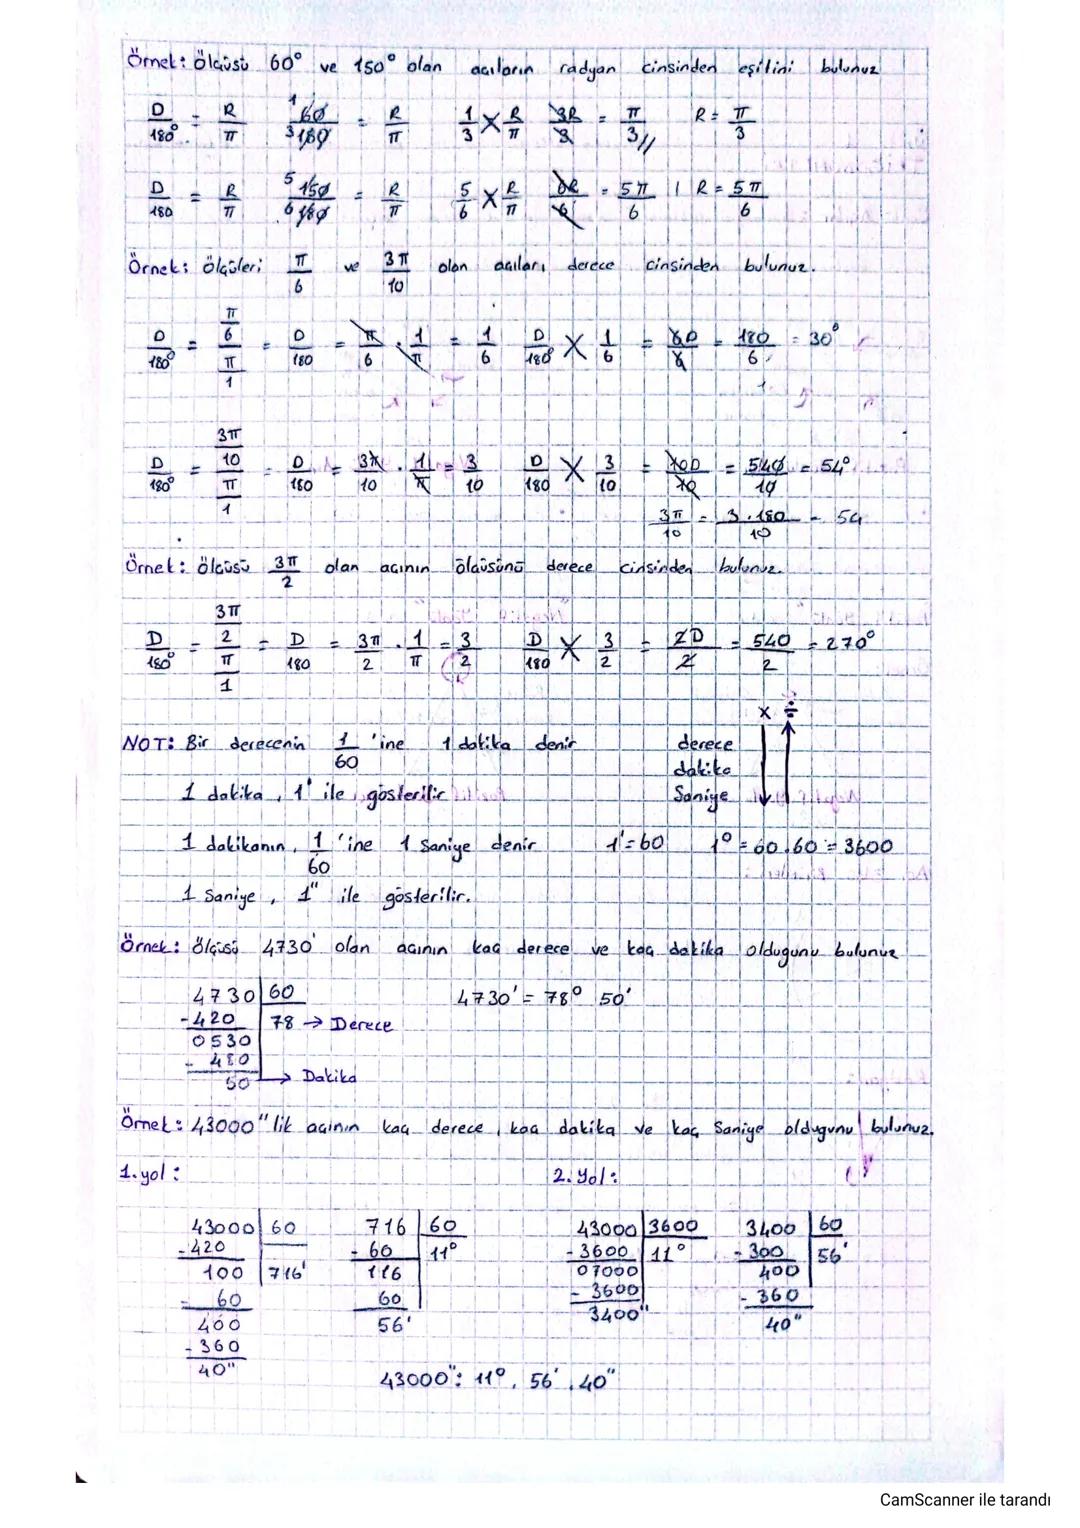 Örnek: Ölçüsü 60° ve 150° olan açıların radyan cinsinden eşitini bulunuz
D/180° = R/π 1 60/3 180 = R/π 1/3 X R/π 3R/3 = π/3 // R = π/3
D/180 = R/π 5 150/6 180 = R/π 5/6 X R/π 6R/6 = 5π/6 | R = 5π/6
Örnek: Ölçüleri π/6 ve 3π/10 olan açıları derece cinsinden bulunuz.
D/180° = π/6 / π/1 = D/180 = π/6 . 1/π = 1/6 D/180° X 1/6 = 6D/6 = 180/6 = 30°
D/180° = 3π/10 / π/1 = D/180 = 3π/10 . 1/π = 3/10 D/180 X 3/10 = 10D/10 = 540/10 = 54°
3π/10 = 3.180/10 = 54
Örnek: Ölçüsü 3π/2 olan açının ölçüsünü derece cinsinden bulunuz.
D/180° = 3π/2 / π/1 = D/180 = 3π/2 . 1/π = 3/2 D/180 X 3/2 = 2D/2 = 540/2 = 270°
x ÷
NOT: Bir derecenin 1/60 'ine 1 dakika denir derece
dakika
1 dakika, 1' ile gösterilir Saniye
1 dakikanın, 1/60 'ine 1 Saniye denir 1'=60 1° = 60.60 = 3600
1 Saniye, 1" ile gösterilir.
Örnek: Ölçüsü 4730' olan açının kaç derece ve kaç dakika olduğunu bulunuz
4730 60 4730' = 78° 50'
-420 78 → Derece
0530
- 480
50 → Dakika
Örnek: 43000" lik açının kaç derece, kaç dakika ve kaç Saniye olduğunu bulunuz.
1. yol: 2. Yol:
43000 60 716 60 43000 3600 3400 60
-420 - 60 11° -3600 11° - 300 56'
100 716' 116 07000 400
- 60 60 - 3600 - 360
400 56' 3400" 40"
- 360
40"
43000": 11°, 56', 40"
CamScanner ile tarandı